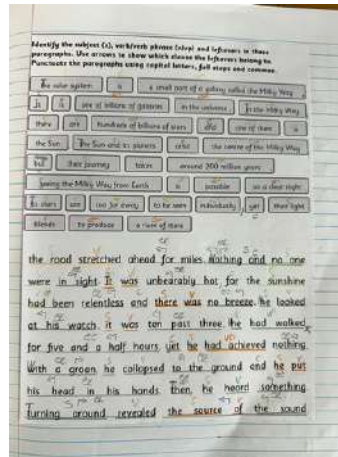 Identify the subject (s), verb/verb phrase (v/vp) and leftovers in these
paragraphs. Use arrows to show which clause the leftovers belong to.
Punctuate the paragraphs using capital letters, full stops and commas.
The solar system is a small part of a galaxy called the Milky Way
It is one of billions of galaxies in the universe In the Milky Way
there are hundreds of billions of stars and one of them is
the Sun The Sun and its planets orbit the centre of the Milky Way
but their journey takes around 200 million years
Seeing the Milky Way from Earth is possible on a clear night
Its stars are too far away to be seen individually, yet their light
blends to produce a river of stars
the road stretched ahead for miles. Nothing and no one
were in sight. It was unbearably hot for the sunshine
had been relentless and there was no breeze. he looked
at his watch. it was ten past three. he had walked
for five and a half hours, yet he had achieved nothing.
With a groan, he collapsed to the ground and he put
his head in his hands. then, he heard something
Turning around revealed the source of the sound